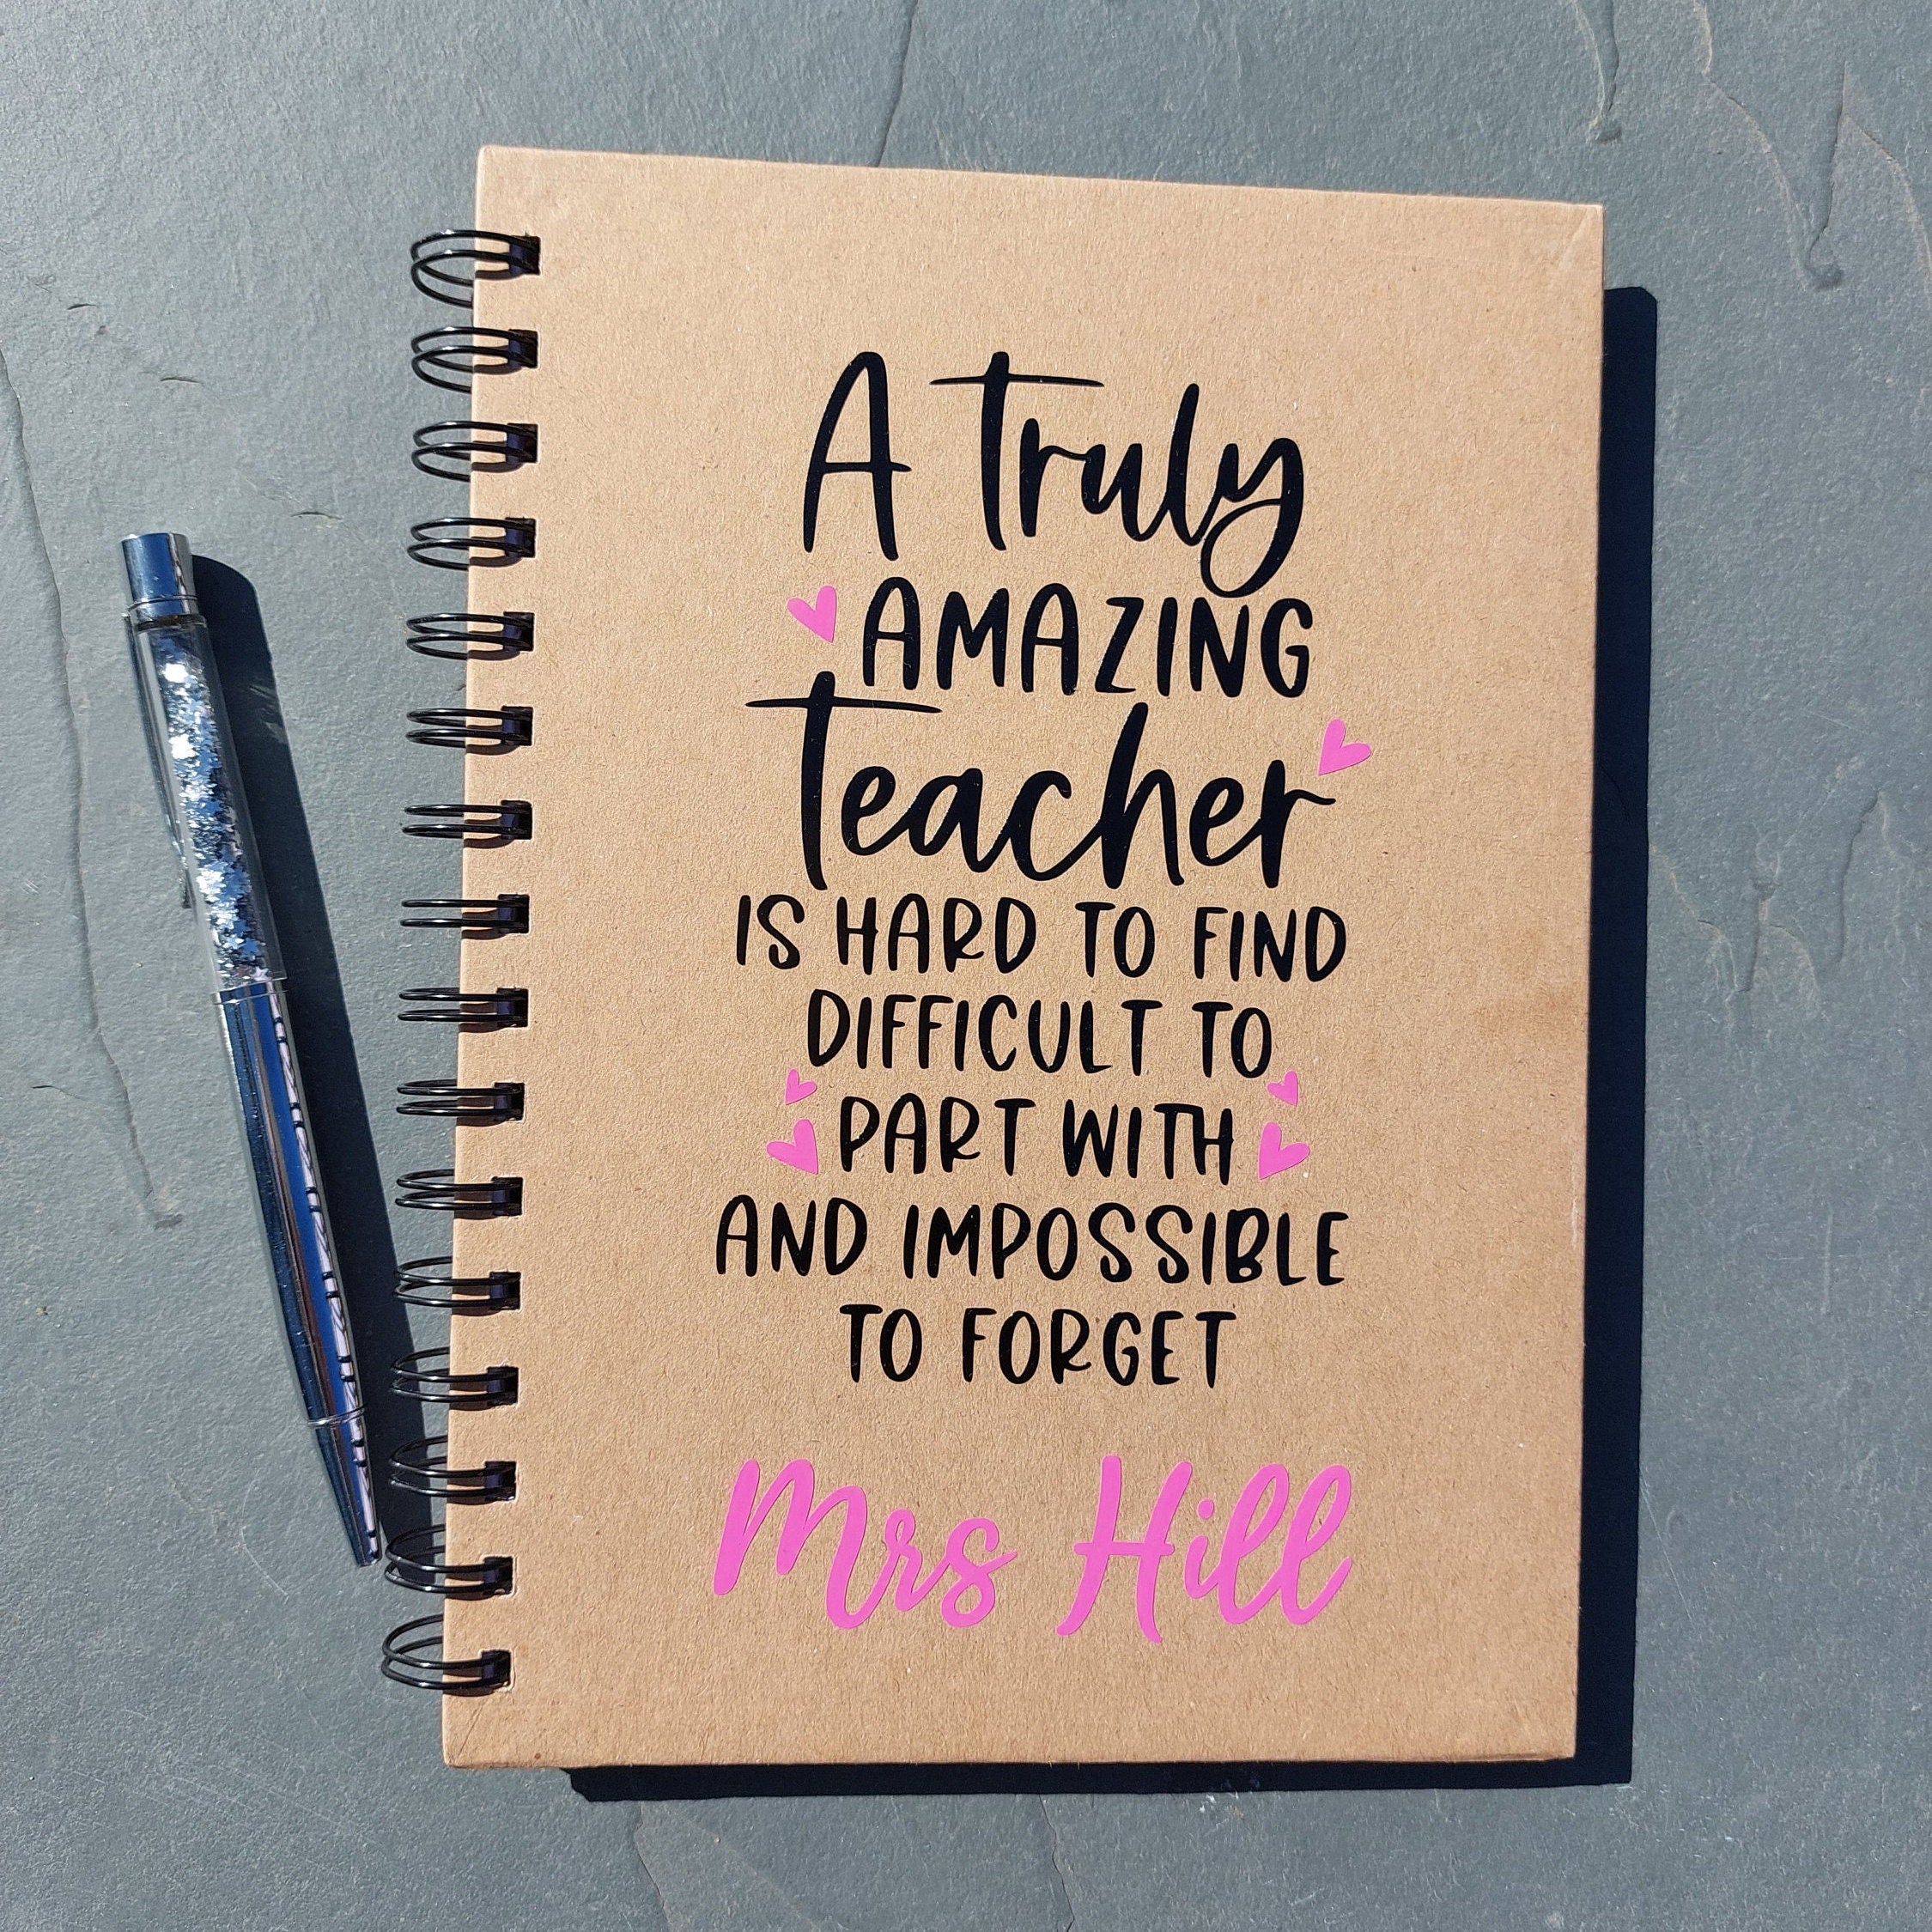 A Truly
AMAZING
Teacher
IS HARD TO FIND
DIFFICULT TO
PART WITH
AND IMPOSSIBLE
TO FORGET
Mrs Hill